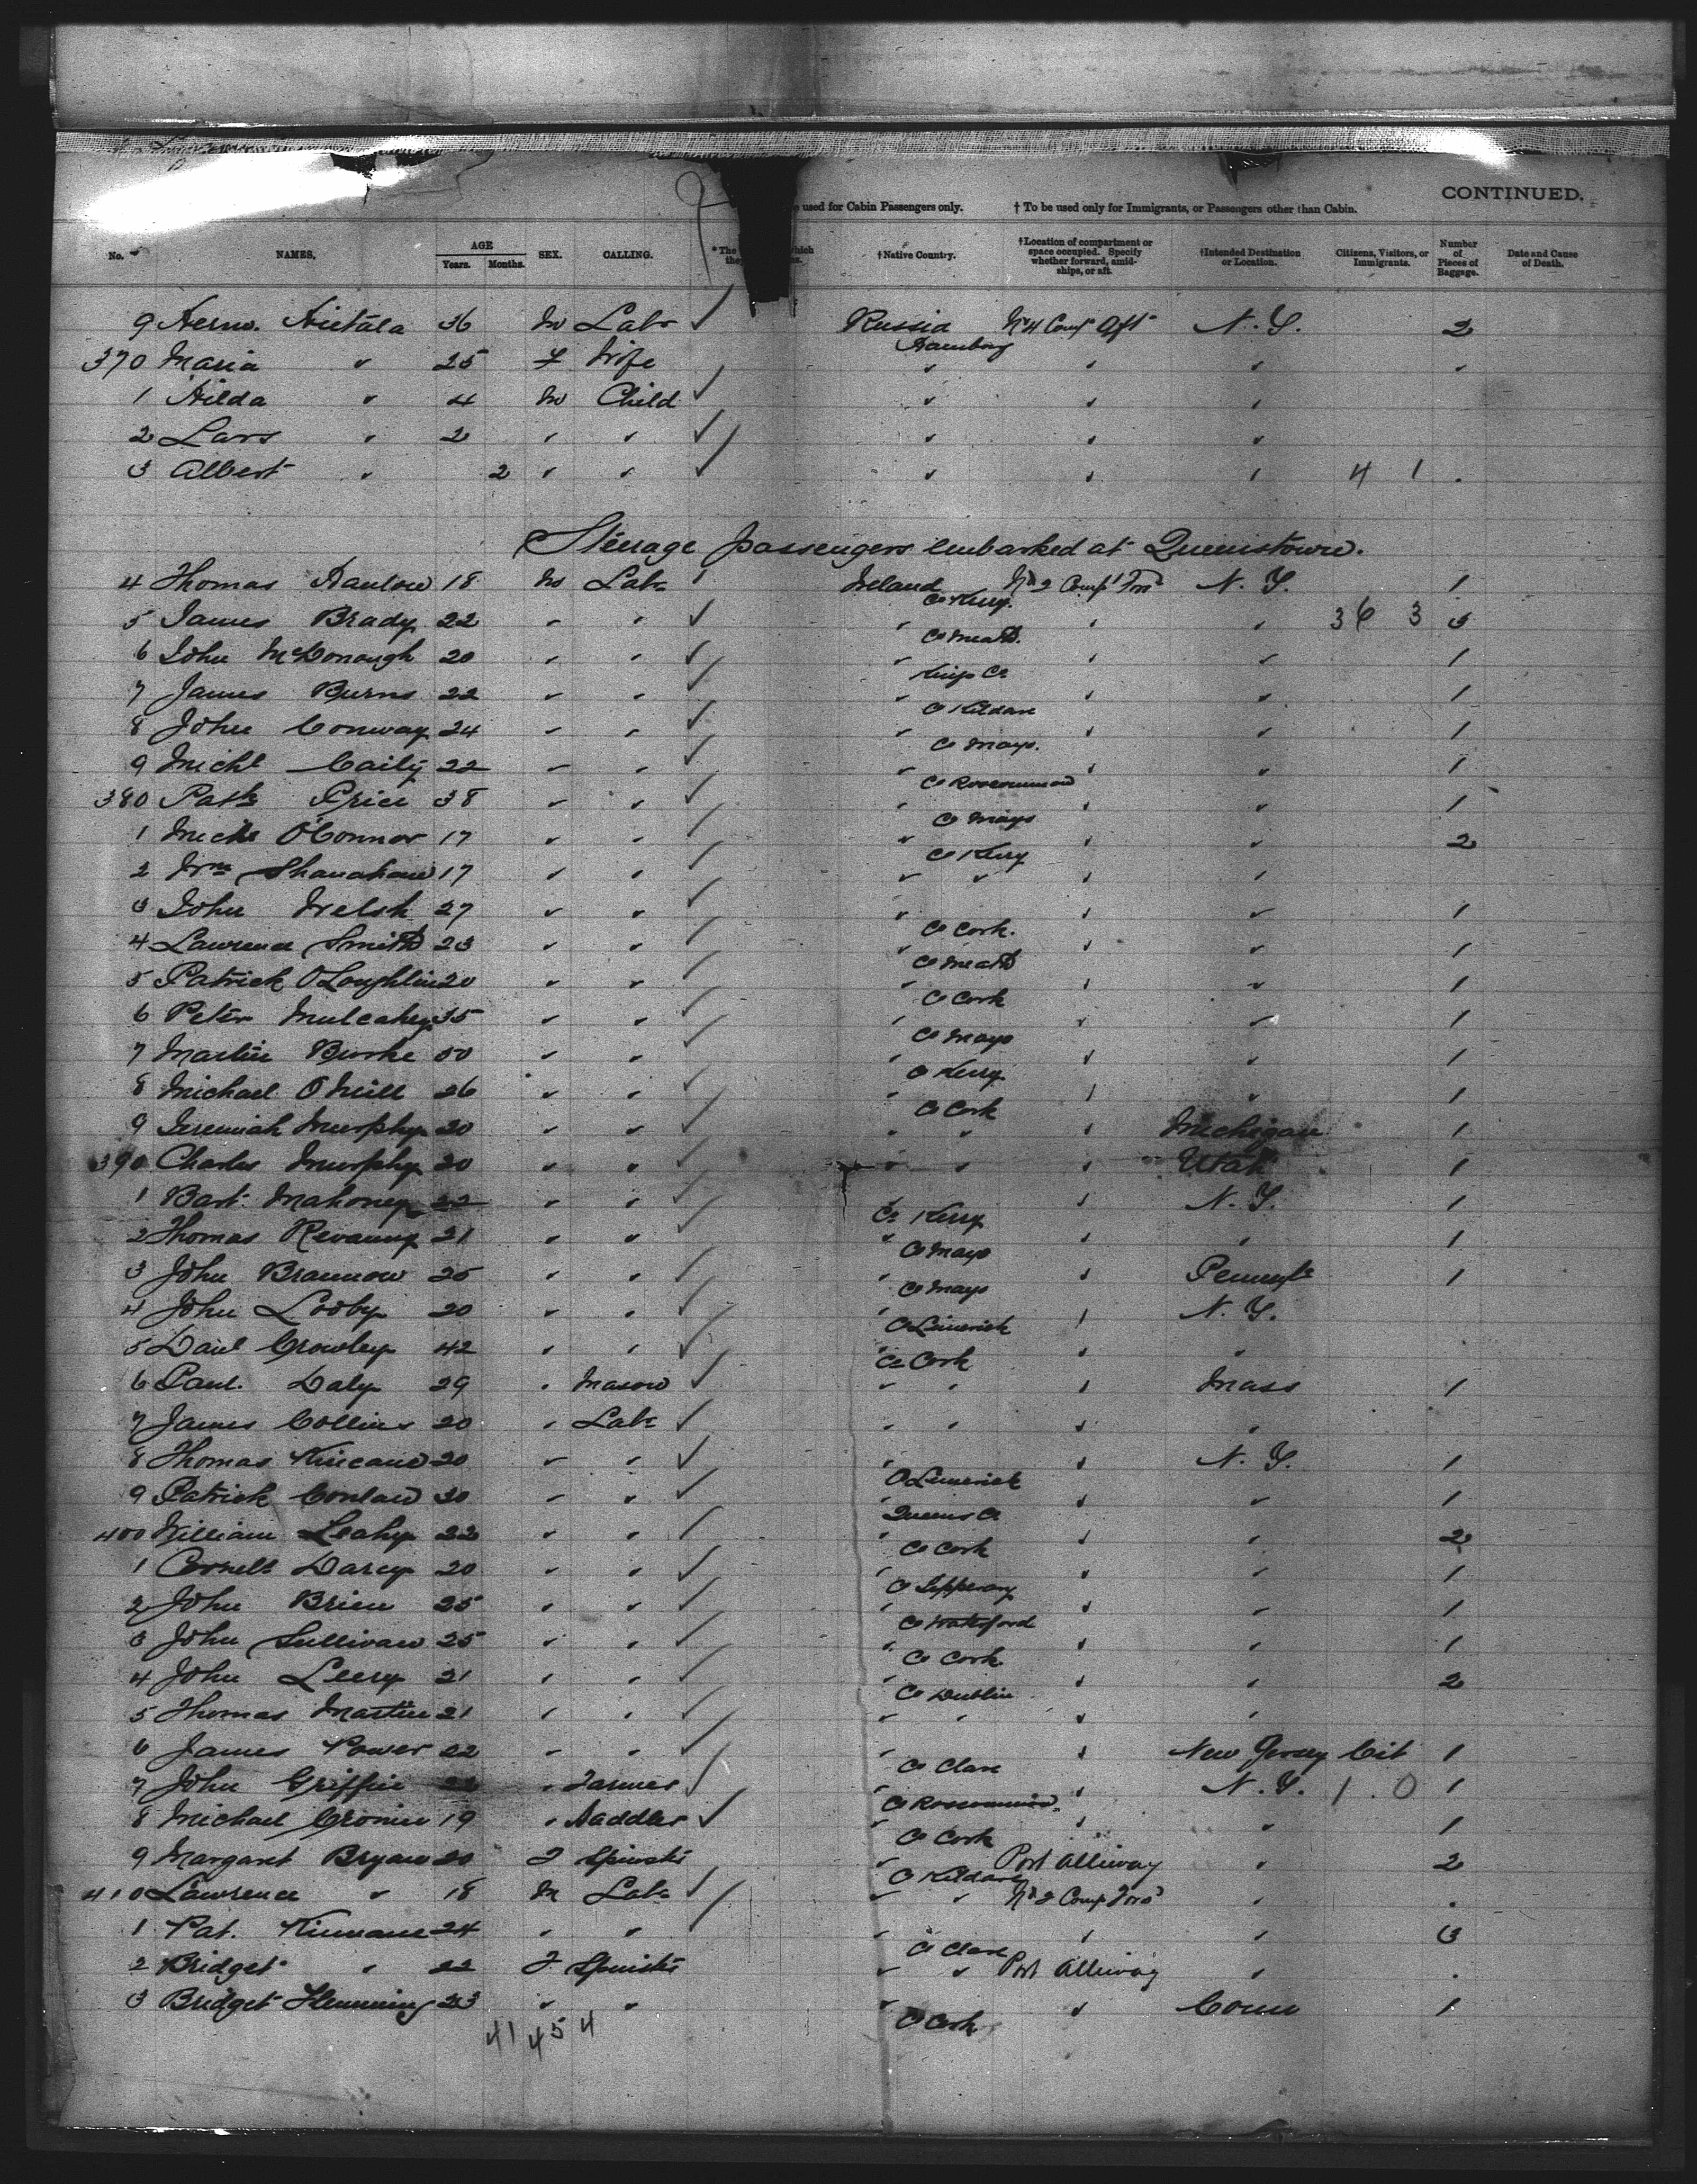 CONTINUED.
e used for Cabin Passengers only. † To be used only for Immigrants, or Passengers other than Cabin.
No. NAMES. AGE Years. Months. SEX. CALLING. *The which †Native Country. †Location of compartment or space occupied. Specify whether forward, amidships, or aft. †Intended Destination or Location. Citizens, Visitors, or Immigrants. Number of Pieces of Baggage. Date and Cause of Death.
9 Herm. Hietala 36 M Labr ✓ Russia No 4 Compt Aft N. Y. 2
Hamburg
370 Maria " 25 F Wife " " " "
1 Hilda " 4 M Child ✓ " " "
2 Lars " 2 " " ✓ " " "
3 Albert " 2 " " ✓ " " " 4 1 "
Steerage passengers embarked at Queenstown.
4 Thomas Hanlon 18 M Labr Ireland No 2 Compt Forrd N. Y. 1
Co Kerry.
5 James Brady 22 " " ✓ " " " 36 3 3
Co Meath.
6 John McDonough 20 " " ✓ " " " 1
Kings Co
7 James Burns 22 " " ✓ " " " 1
Co Kildare
8 John Conway 24 " " ✓ " " " 1
Co Mayo.
9 Michl Caity 22 " " ✓ " " " 1
Co Roscommon
380 Patk Price 38 " " ✓ " " " 1
Co Mayo
1 Michl O'Connor 17 " " ✓ " " " 2
Co Kerry
2 Wm Shanahan 17 " " ✓ " " " "
3 John Welsh 27 " " ✓ " " " 1
Co Cork.
4 Lawrence Smith 23 " " ✓ " " " 1
Co Meath
5 Patrick O'Loughlin 20 " " ✓ " " " 1
Co Cork
6 Peter Mulcahy 35 " " ✓ " " " 1
Co Mayo
7 Martin Burke 50 " " ✓ " " " 1
Co Kerry
8 Michael O'Neill 26 " " ✓ " " " 1
Co Cork
9 Jeremiah Murphy 20 " " ✓ " " " Michigan 1
390 Charles Murphy 20 " " ✓ " " " Utah 1
1 Bart. Mahoney 22 " " ✓ " " N. Y. 1
Co Kerry
2 Thomas Revanny 21 " " ✓ " " 1
Co Mayo
3 John Brannow 25 " " ✓ " " Pennsyla 1
Co Mayo
4 John Looby 20 " " ✓ " " N. Y.
Co Limerick
5 Danl Crowley 42 " " ✓ " " "
Co Cork
6 Paul. Daly 29 " Mason ✓ " " " Mass 1
7 James Collins 20 " Labr ✓ " " " "
8 Thomas Kincaid 20 " " ✓ " " N. Y. 1
Co Limerick
9 Patrick Conlan 30 " " ✓ " " " 1
Queens Co
400 William Leahy 22 " " ✓ " " " 2
Co Cork
1 Cornels Darcy 20 " " ✓ " " " 1
Co Tipperary
2 John Brien 25 " " ✓ " " 1
Co Waterford
3 John Sullivan 25 " " ✓ " " " 1
Co Cork
4 John Leery 21 " " ✓ " " " 2
Co Dublin
5 Thomas Martin 21 " " ✓ " " " "
6 James Power 22 " " ✓ " " New Jersey Cit 1
Co Clare
7 John Griffin " Farmer ✓ " " N. Y. 1 0 1
Co Roscommon
8 Michael Cronin 19 " Saddler ✓ " " " 1
Co Cork
9 Margaret Bryan 20 F Spinster " Port Alleway " 2
Co Kildare
410 Lawrence " 18 M Labr ✓ " " No 2 Comp Forrd " "
1 Pat. Kinnane 24 " " ✓ " " " 3
Co Clare
2 Bridget " 22 F Spinster " " Port Alleway " "
3 Bridget Flemming 23 " " " " Conn 1
Co Cork
41 45 4